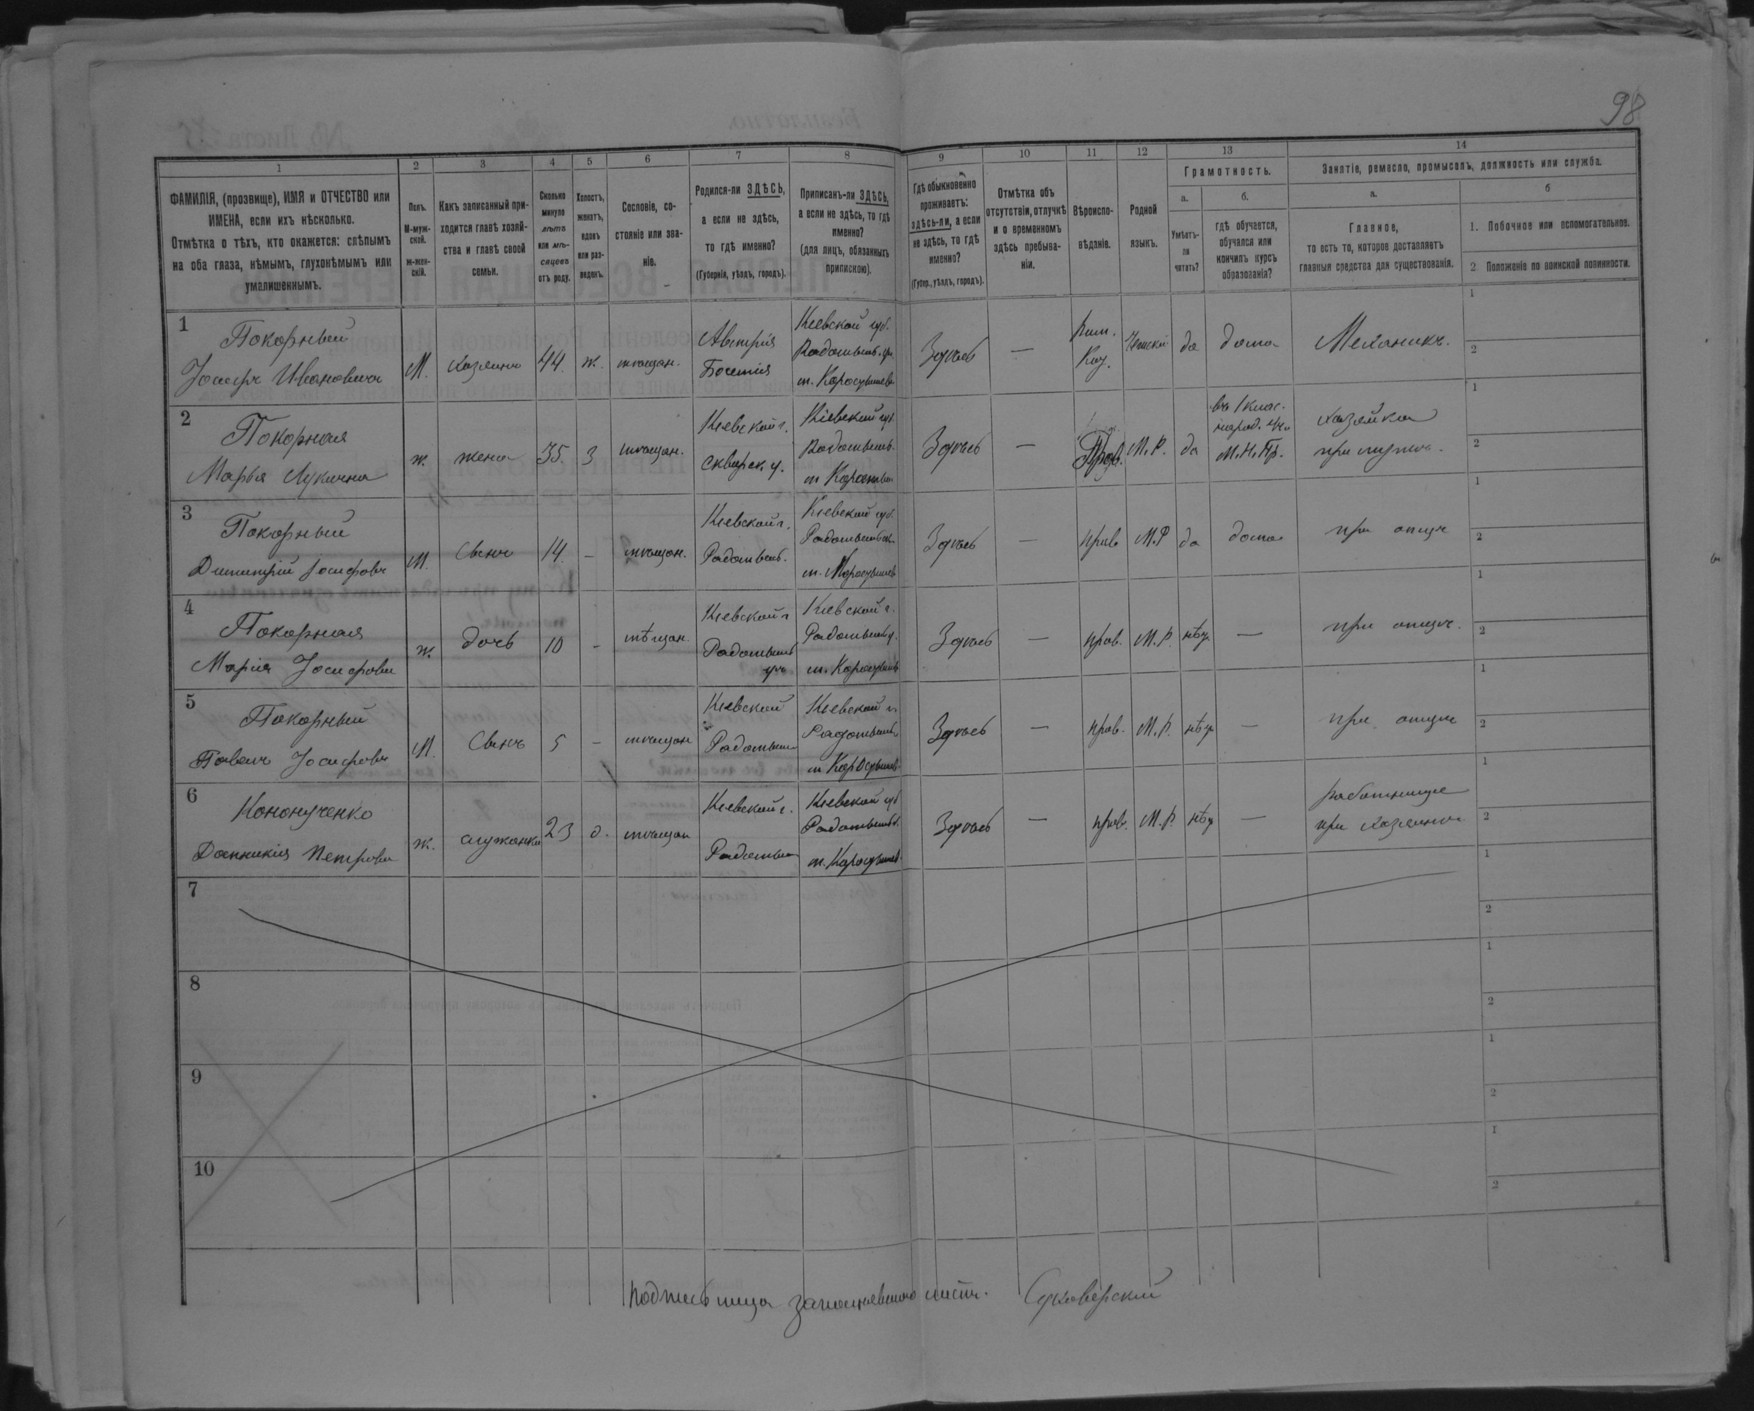 98
1
2
3
4
5
6
7
8
9
10
11
12
13
14
ФАМИЛІЯ, (прозвище), ИМЯ и ОТЧЕСТВО или ИМЕНА, если ихъ нѣсколько.
Отмѣтка о тѣхъ, кто окажется: слѣпымъ на оба глаза, нѣмымъ, глухонѣмымъ или умалишеннымъ.
Полъ. М-мужской. ж-женскій.
Какъ записанный приходится главѣ хозяйства и главѣ своей семьи.
Сколько минуло лѣтъ или мѣсяцевъ отъ роду.
Холостъ, женатъ, вдовъ или разведенъ.
Сословіе, состояніе или званіе.
Родился-ли ЗДѢСЬ, а если не здѣсь, то гдѣ именно?
(Губернія, уѣздъ, городъ).
Приписанъ-ли ЗДѢСЬ, а если не здѣсь, то гдѣ именно?
(для лицъ, обязанныхъ припискою).
Гдѣ обыкновенно проживаетъ: здѣсь-ли, а если не здѣсь, то гдѣ именно?
(Губер., уѣздъ, городъ).
Отмѣтка объ отсутствіи, отлучкѣ и о временномъ здѣсь пребываніи.
Вѣроисповѣданіе.
Родной языкъ.
Грамотность.
а.
Умѣетъ-ли читать?
б.
гдѣ обучается, обучался или кончилъ курсъ образованія?
Занятіе, ремесло, промыселъ, должность или служба.
а.
Главное,
то есть то, которое доставляетъ главныя средства для существованія.
б
1. Побочное или вспомогательное.
2. Положеніе по воинской повинности.
1
Покорный
Іосифъ Ивановичъ
М.
хозяинъ
44
ж.
мѣщан.
Австрія
Богемія
Кіевской губ.
Радомысль. у.
м. Коростышевъ
Здѣсь
—
Рим. Кат.
Чешскій
да
дома
Механикъ.
1
2
2
Покорная
Марья Лукична
ж.
жена
35
з
мѣщан.
Кіевской г.
Сквирск. у.
Кіевской губ
Радомысль.
м. Коростыш
Здѣсь
—
Прав.
М.Р.
да
въ 1 клас. народ. уч. М.Н.Пр.
хозяйка
при мужѣ.
1
2
3
Покорный
Димитрій Іосифовъ
М.
Сынъ
14
-
мѣщан.
Кіевской г.
Радомысль.
Кіевской губ
Радомысль.
м. Коростышев
Здѣсь
—
прав
М.Р
да
дома
при отцѣ
1
2
4
Покорная
Марія Іосифовн
ж.
дочь
10
-
мѣщан.
Кіевской г
Радомысль
у.
Кіевской г.
Радомысль у.
м. Коростышев
Здѣсь
—
прав.
М.Р.
нѣт
—
при отцѣ.
1
2
5
Покорный
Павелъ Іосифовъ
М.
Сынъ
5
-
мѣщан
Кіевской
Радомысль
Кіевской г.
Радомысль
м. Коростышев.
Здѣсь
—
прав.
М.Р.
нѣт
—
при отцѣ
1
2
6
Кононученко
Домникія Петровн
ж.
служанка
23
д.
мѣщан
Кіевской г.
Радомысль
Кіевской губ
Радомысль
м. Коростышев.
Здѣсь
—
прав.
М.Р.
нѣт
—
работница
при хозяинѣ
1
2
7
1
2
8
1
2
9
1
2
10
1
2
Подпись лица заполнявшего листъ. Суховерскій